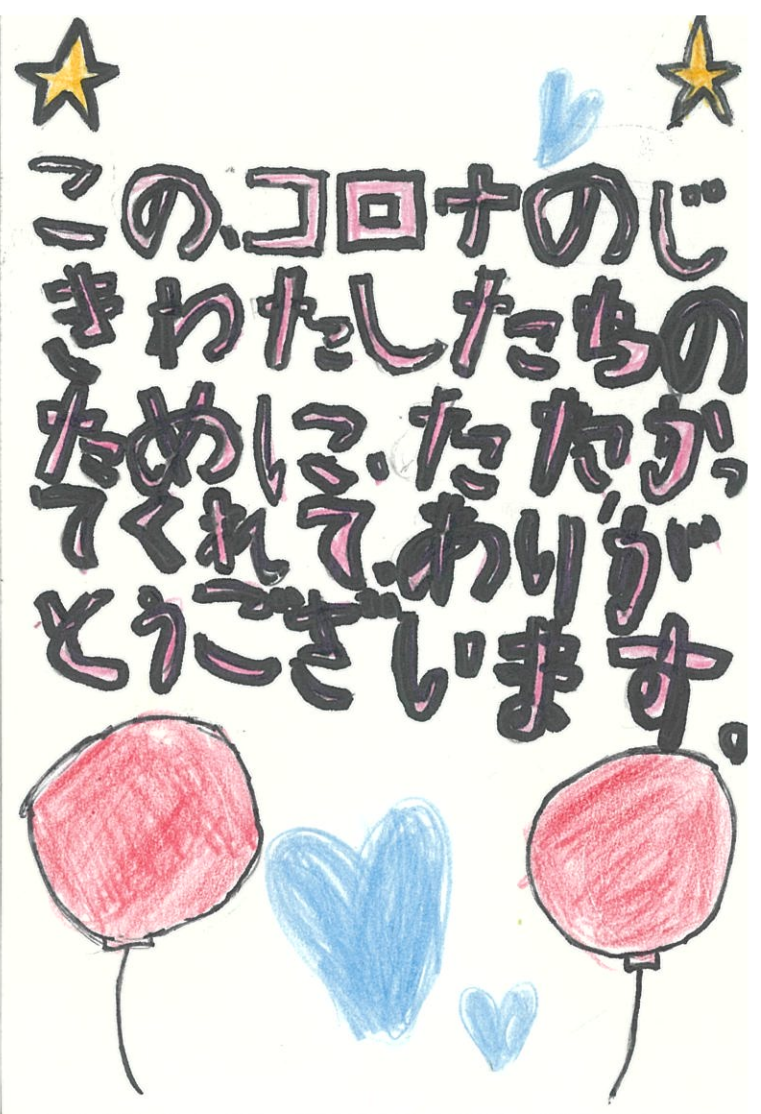 この、コロナのじ
きわたしたちの
ために、たたかっ
てくれて、ありが
とうございます。